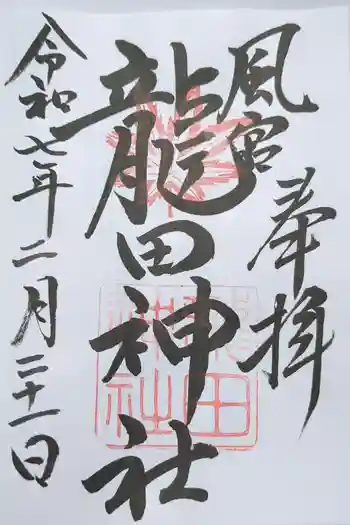 奉拝
風宮
龍田神社
令和七年二月二十一日
龍田神社